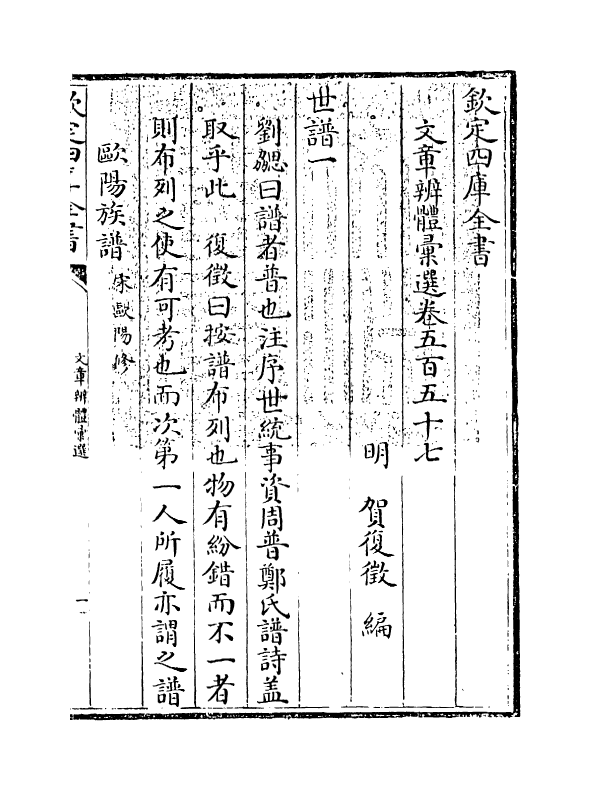 欽定四庫全書
文章辨體彙選卷五百五十七
明 賀復徵 編
世譜一
劉勰曰譜者普也注序世統事資周普鄭氏譜詩盖
取乎此 復徵曰按譜布列也物有紛錯而不一者
則布列之使有可考也而次第一人所履亦謂之譜
歐陽族譜 宋歐陽修
欽定四庫全書
文章辨體彙選
一